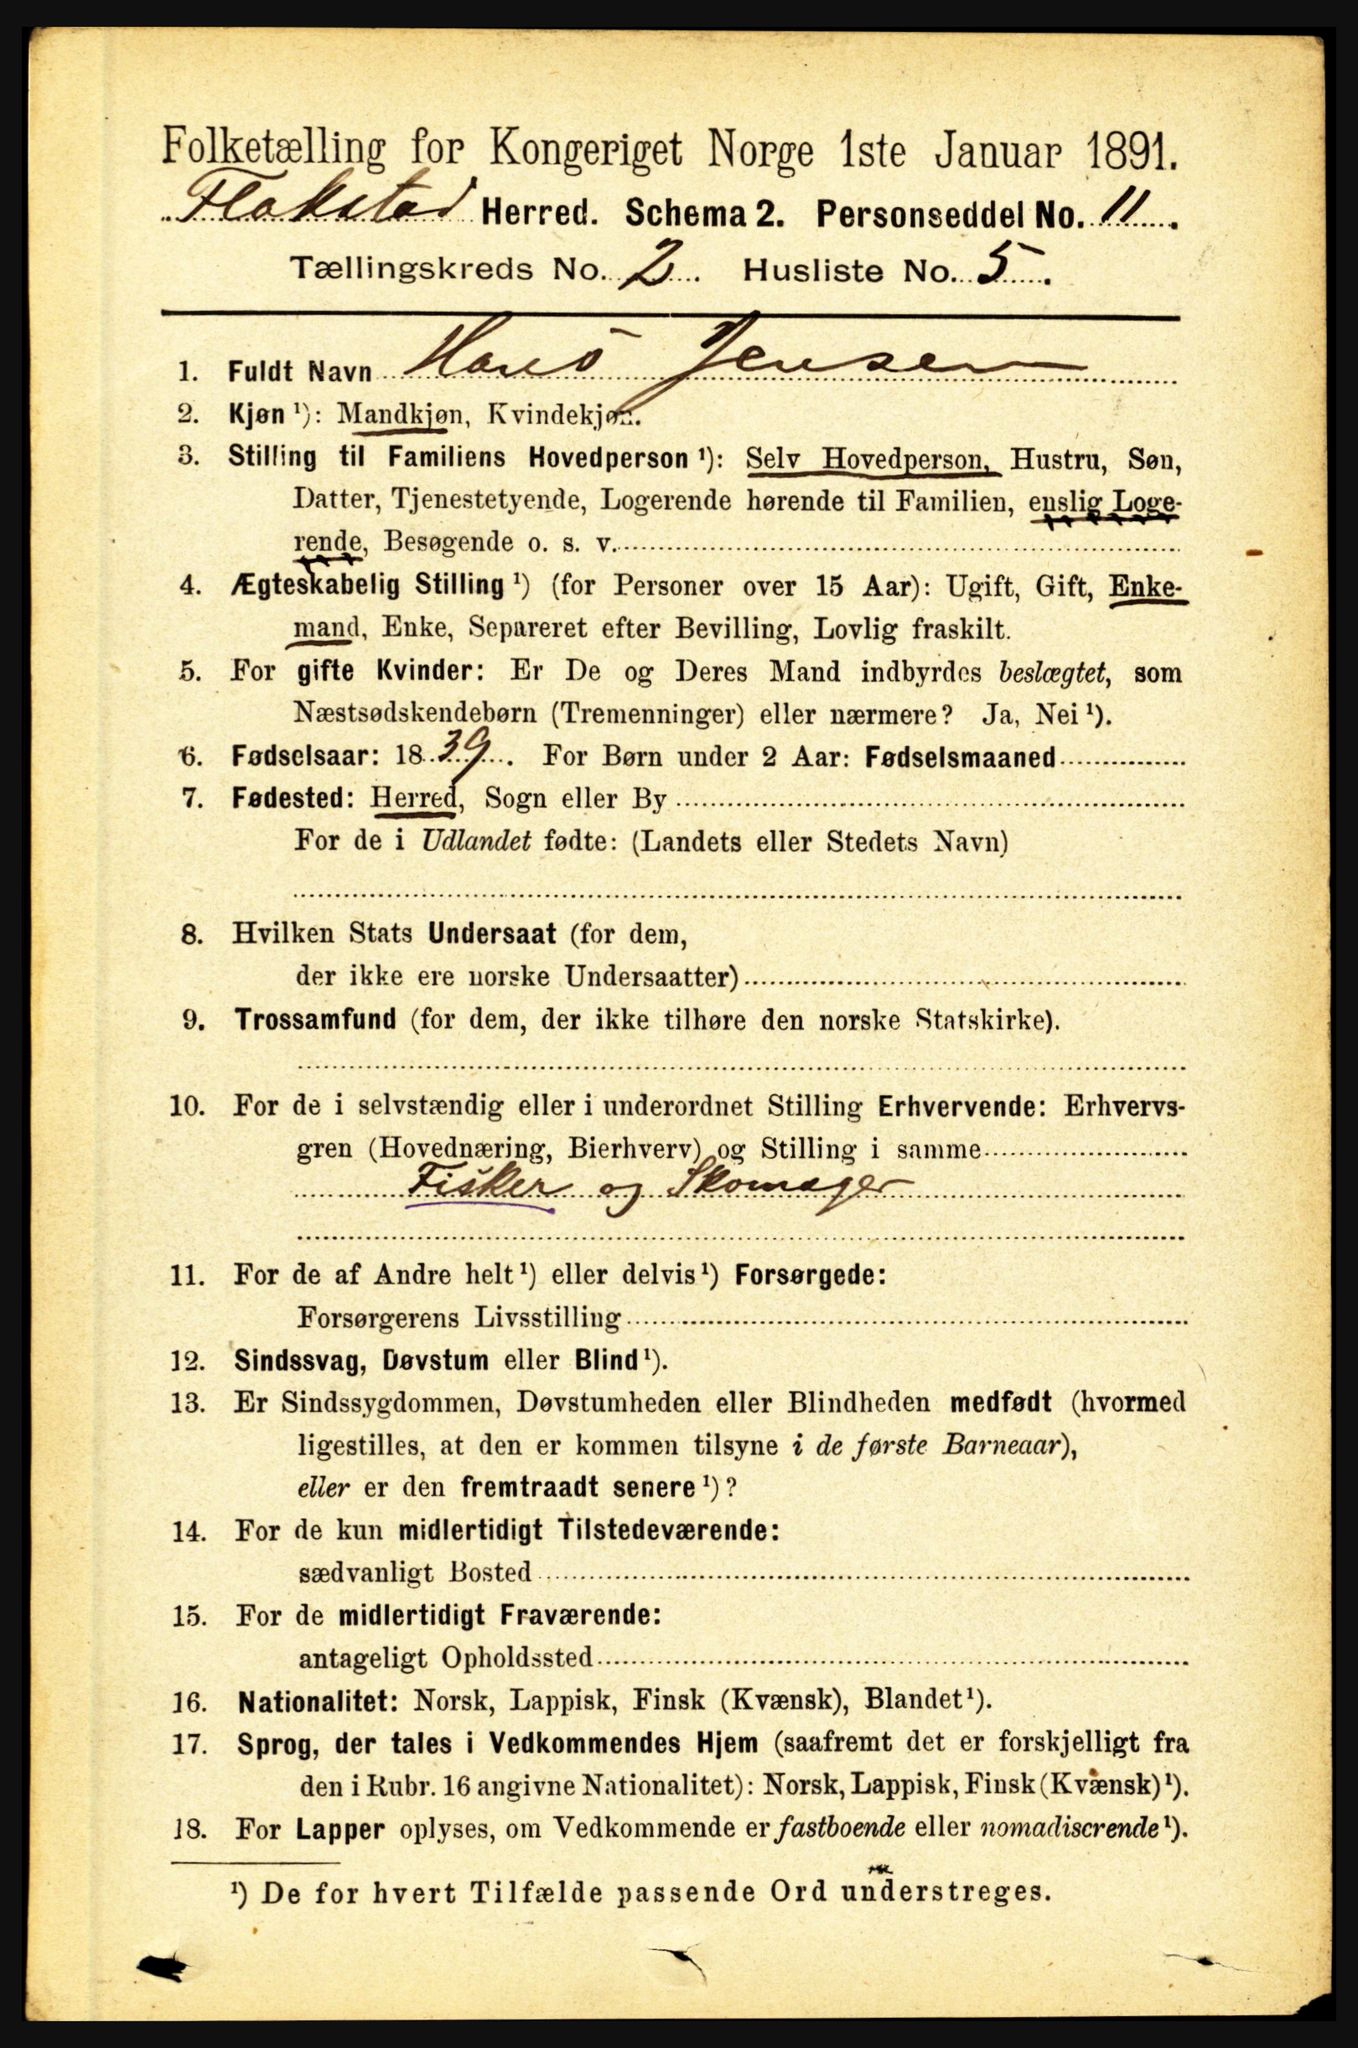 Folketælling for Kongeriget Norge 1ste Januar 1891.
Flakstad Herred. Schema 2. Personseddel No. 11.
Tællingskreds No. 2. Husliste No. 5.
1. Fuldt Navn Hans Jensen
2. Kjøn ¹): Mandkjøn, Kvindekjøn.
3. Stilling til Familiens Hovedperson ¹): Selv Hovedperson, Hustru, Søn,
Datter, Tjenestetyende, Logerende hørende til Familien, enslig Loge-
rende, Besøgende o. s. v.
4. Ægteskabelig Stilling ¹) (for Personer over 15 Aar): Ugift, Gift, Enke-
mand, Enke, Separeret efter Bevilling, Lovlig fraskilt.
5. For gifte Kvinder: Er De og Deres Mand indbyrdes beslægtet, som
Næstsødskendebørn (Tremenninger) eller nærmere? Ja, Nei ¹).
6. Fødselsaar: 1839. For Børn under 2 Aar: Fødselsmaaned
7. Fødested: Herred, Sogn eller By
For de i Udlandet fødte: (Landets eller Stedets Navn)
8. Hvilken Stats Undersaat (for dem,
der ikke ere norske Undersaatter)
9. Trossamfund (for dem, der ikke tilhøre den norske Statskirke).
10. For de i selvstændig eller i underordnet Stilling Erhvervende: Erhvervs-
gren (Hovednæring, Bierhverv) og Stilling i samme
Fisker og Skomager
11. For de af Andre helt ¹) eller delvis ¹) Forsørgede:
Forsørgerens Livsstilling
12. Sindssvag, Døvstum eller Blind ¹).
13. Er Sindssygdommen, Døvstumheden eller Blindheden medfødt (hvormed
ligestilles, at den er kommen tilsyne i de første Barneaar),
eller er den fremtraadt senere ¹)?
14. For de kun midlertidigt Tilstedeværende:
sædvanligt Bosted
15. For de midlertidigt Fraværende:
antageligt Opholdssted
16. Nationalitet: Norsk, Lappisk, Finsk (Kvænsk), Blandet ¹).
17. Sprog, der tales i Vedkommendes Hjem (saafremt det er forskjelligt fra
den i Rubr. 16 angivne Nationalitet): Norsk, Lappisk, Finsk (Kvænsk) ¹).
18. For Lapper oplyses, om Vedkommende er fastboende eller nomadiserende ¹).
¹) De for hvert Tilfælde passende Ord understreges.